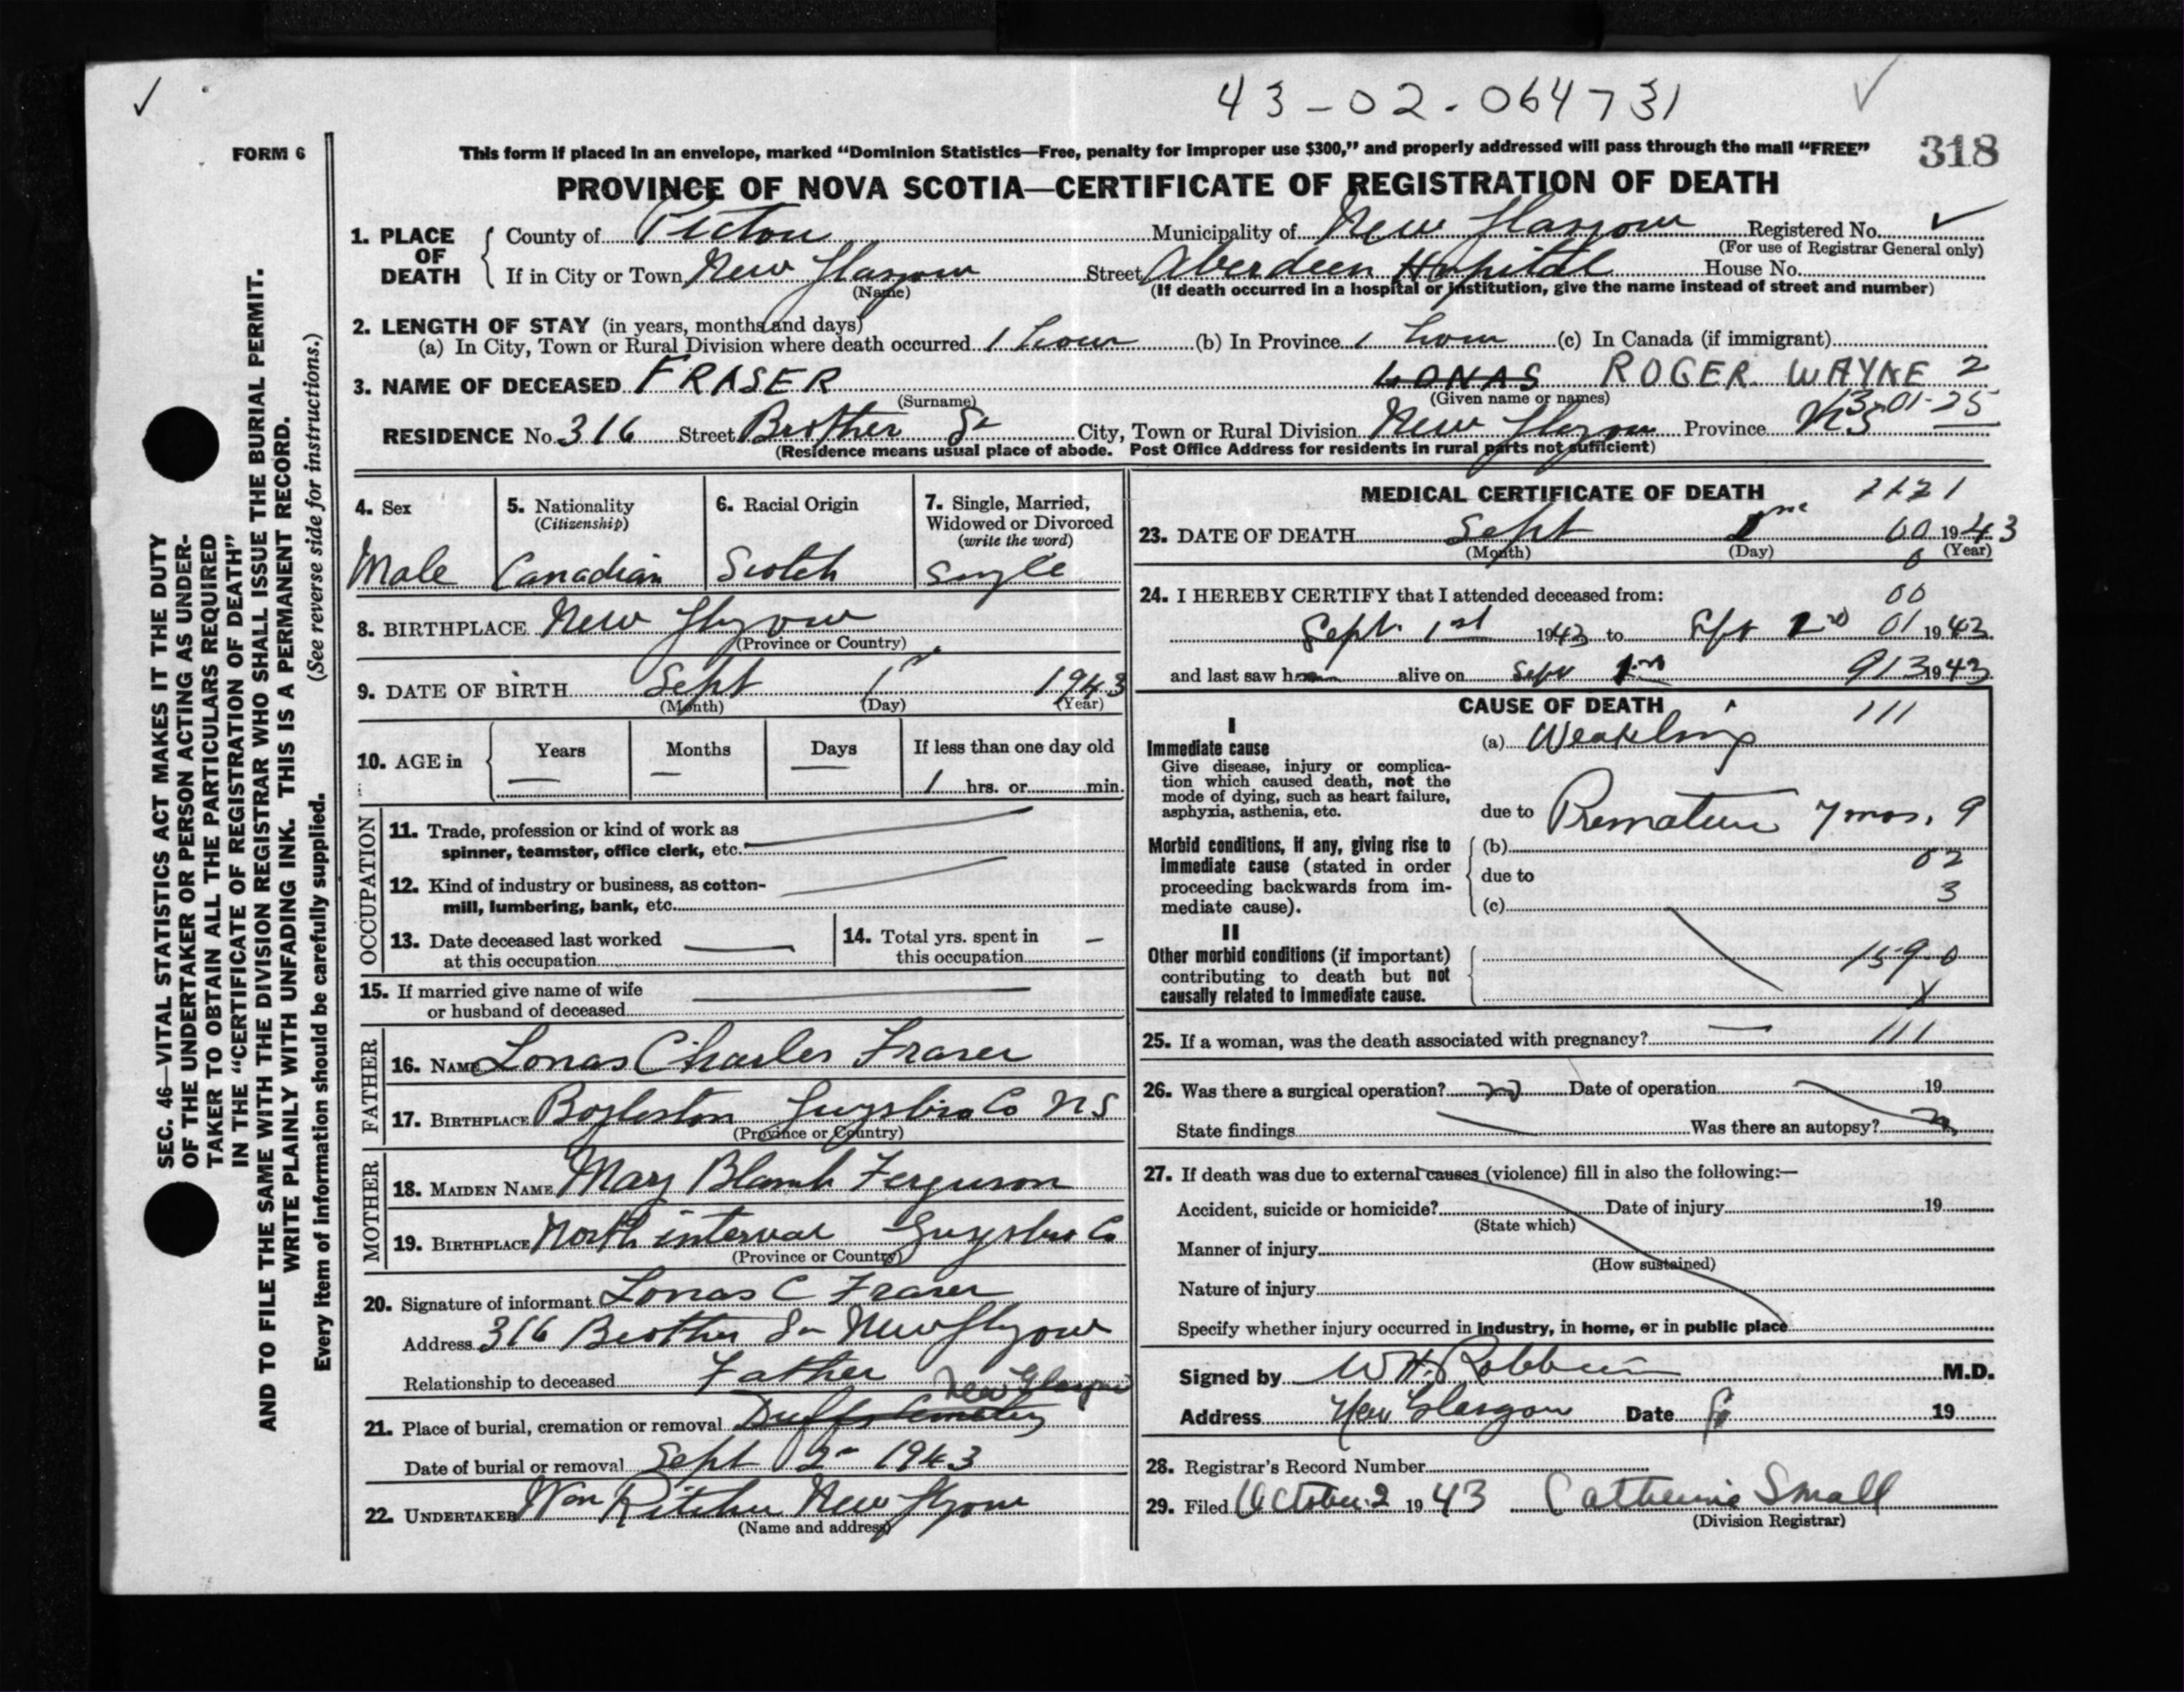 43-02-064731
FORM 6
This form if placed in an envelope, marked "Dominion Statistics—Free, penalty for improper use $300," and properly addressed will pass through the mail "FREE"
318
PROVINCE OF NOVA SCOTIA—CERTIFICATE OF REGISTRATION OF DEATH
1. PLACE OF DEATH
County of Pictou Municipality of New Glasgow Registered No.
(For use of Registrar General only)
If in City or Town New Glasgow Street Aberdeen Hospital House No.
(Name) (If death occurred in a hospital or institution, give the name instead of street and number)
2. LENGTH OF STAY (in years, months and days)
(a) In City, Town or Rural Division where death occurred 1 hour (b) In Province 1 hour (c) In Canada (if immigrant)
3. NAME OF DECEASED FRASER LONAS ROGER WAYNE 2
(Surname) (Given name or names)
13-01-25
RESIDENCE No. 316 Street Brother St City, Town or Rural Division New Glasgow Province NS
(Residence means usual place of abode. Post Office Address for residents in rural parts not sufficient)
4. Sex
Male
5. Nationality
(Citizenship)
Canadian
6. Racial Origin
Scotch
7. Single, Married,
Widowed or Divorced
(write the word)
Single
8. BIRTHPLACE New Glasgow
(Province or Country)
9. DATE OF BIRTH Sept 1st 1943
(Month) (Day) (Year)
10. AGE in
Years Months Days If less than one day old
1 hrs. or min.
OCCUPATION
11. Trade, profession or kind of work as
spinner, teamster, office clerk, etc.
12. Kind of industry or business, as cotton-
mill, lumbering, bank, etc.
13. Date deceased last worked
at this occupation
14. Total yrs. spent in
this occupation
15. If married give name of wife
or husband of deceased
FATHER
16. NAME Lonas Charles Fraser
17. BIRTHPLACE Boylston Guysboro Co NS
(Province or Country)
MOTHER
18. MAIDEN NAME Mary Blanch Ferguson
19. BIRTHPLACE North interval Guysboro Co
(Province or Country)
20. Signature of informant Lonas C Fraser
Address 316 Brother St New Glasgow
Relationship to deceased Father
New Glasgow
21. Place of burial, cremation or removal Duffs Cemetery
Date of burial or removal Sept 2nd 1943
22. UNDERTAKER Wm Ritchie New Glasgow
(Name and address)
MEDICAL CERTIFICATE OF DEATH 1121
23. DATE OF DEATH Sept 1943
(Month) (Day) (Year)
00
0
24. I HEREBY CERTIFY that I attended deceased from:
00
Sept. 1st 1943 to Sept 01 1943
and last saw h alive on Sept 913 1943
CAUSE OF DEATH
111
I
Immediate cause
Give disease, injury or complica-
tion which caused death, not the
mode of dying, such as heart failure,
asphyxia, asthenia, etc.
(a) Weakling
due to Premature 7 mos. 9
Morbid conditions, if any, giving rise to
immediate cause (stated in order
proceeding backwards from im-
mediate cause).
(b)
02
due to
3
(c)
II
Other morbid conditions (if important)
contributing to death but not
causally related to immediate cause.
159.0
X
25. If a woman, was the death associated with pregnancy? 111
26. Was there a surgical operation? no Date of operation 19
State findings Was there an autopsy? no
27. If death was due to external causes (violence) fill in also the following:—
Accident, suicide or homicide? Date of injury 19
(State which)
Manner of injury
(How sustained)
Nature of injury
Specify whether injury occurred in industry, in home, or in public place
Signed by W H. Robbins M.D.
Address New Glasgow Date 19
28. Registrar's Record Number
29. Filed October 2 1943 Catherine Small
(Division Registrar)
SEC. 46—VITAL STATISTICS ACT MAKES IT THE DUTY
OF THE UNDERTAKER OR PERSON ACTING AS UNDER-
TAKER TO OBTAIN ALL THE PARTICULARS REQUIRED
IN THE "CERTIFICATE OF REGISTRATION OF DEATH"
AND TO FILE THE SAME WITH THE DIVISION REGISTRAR WHO SHALL ISSUE THE BURIAL PERMIT.
WRITE PLAINLY WITH UNFADING INK. THIS IS A PERMANENT RECORD.
Every item of information should be carefully supplied. (See reverse side for instructions.)